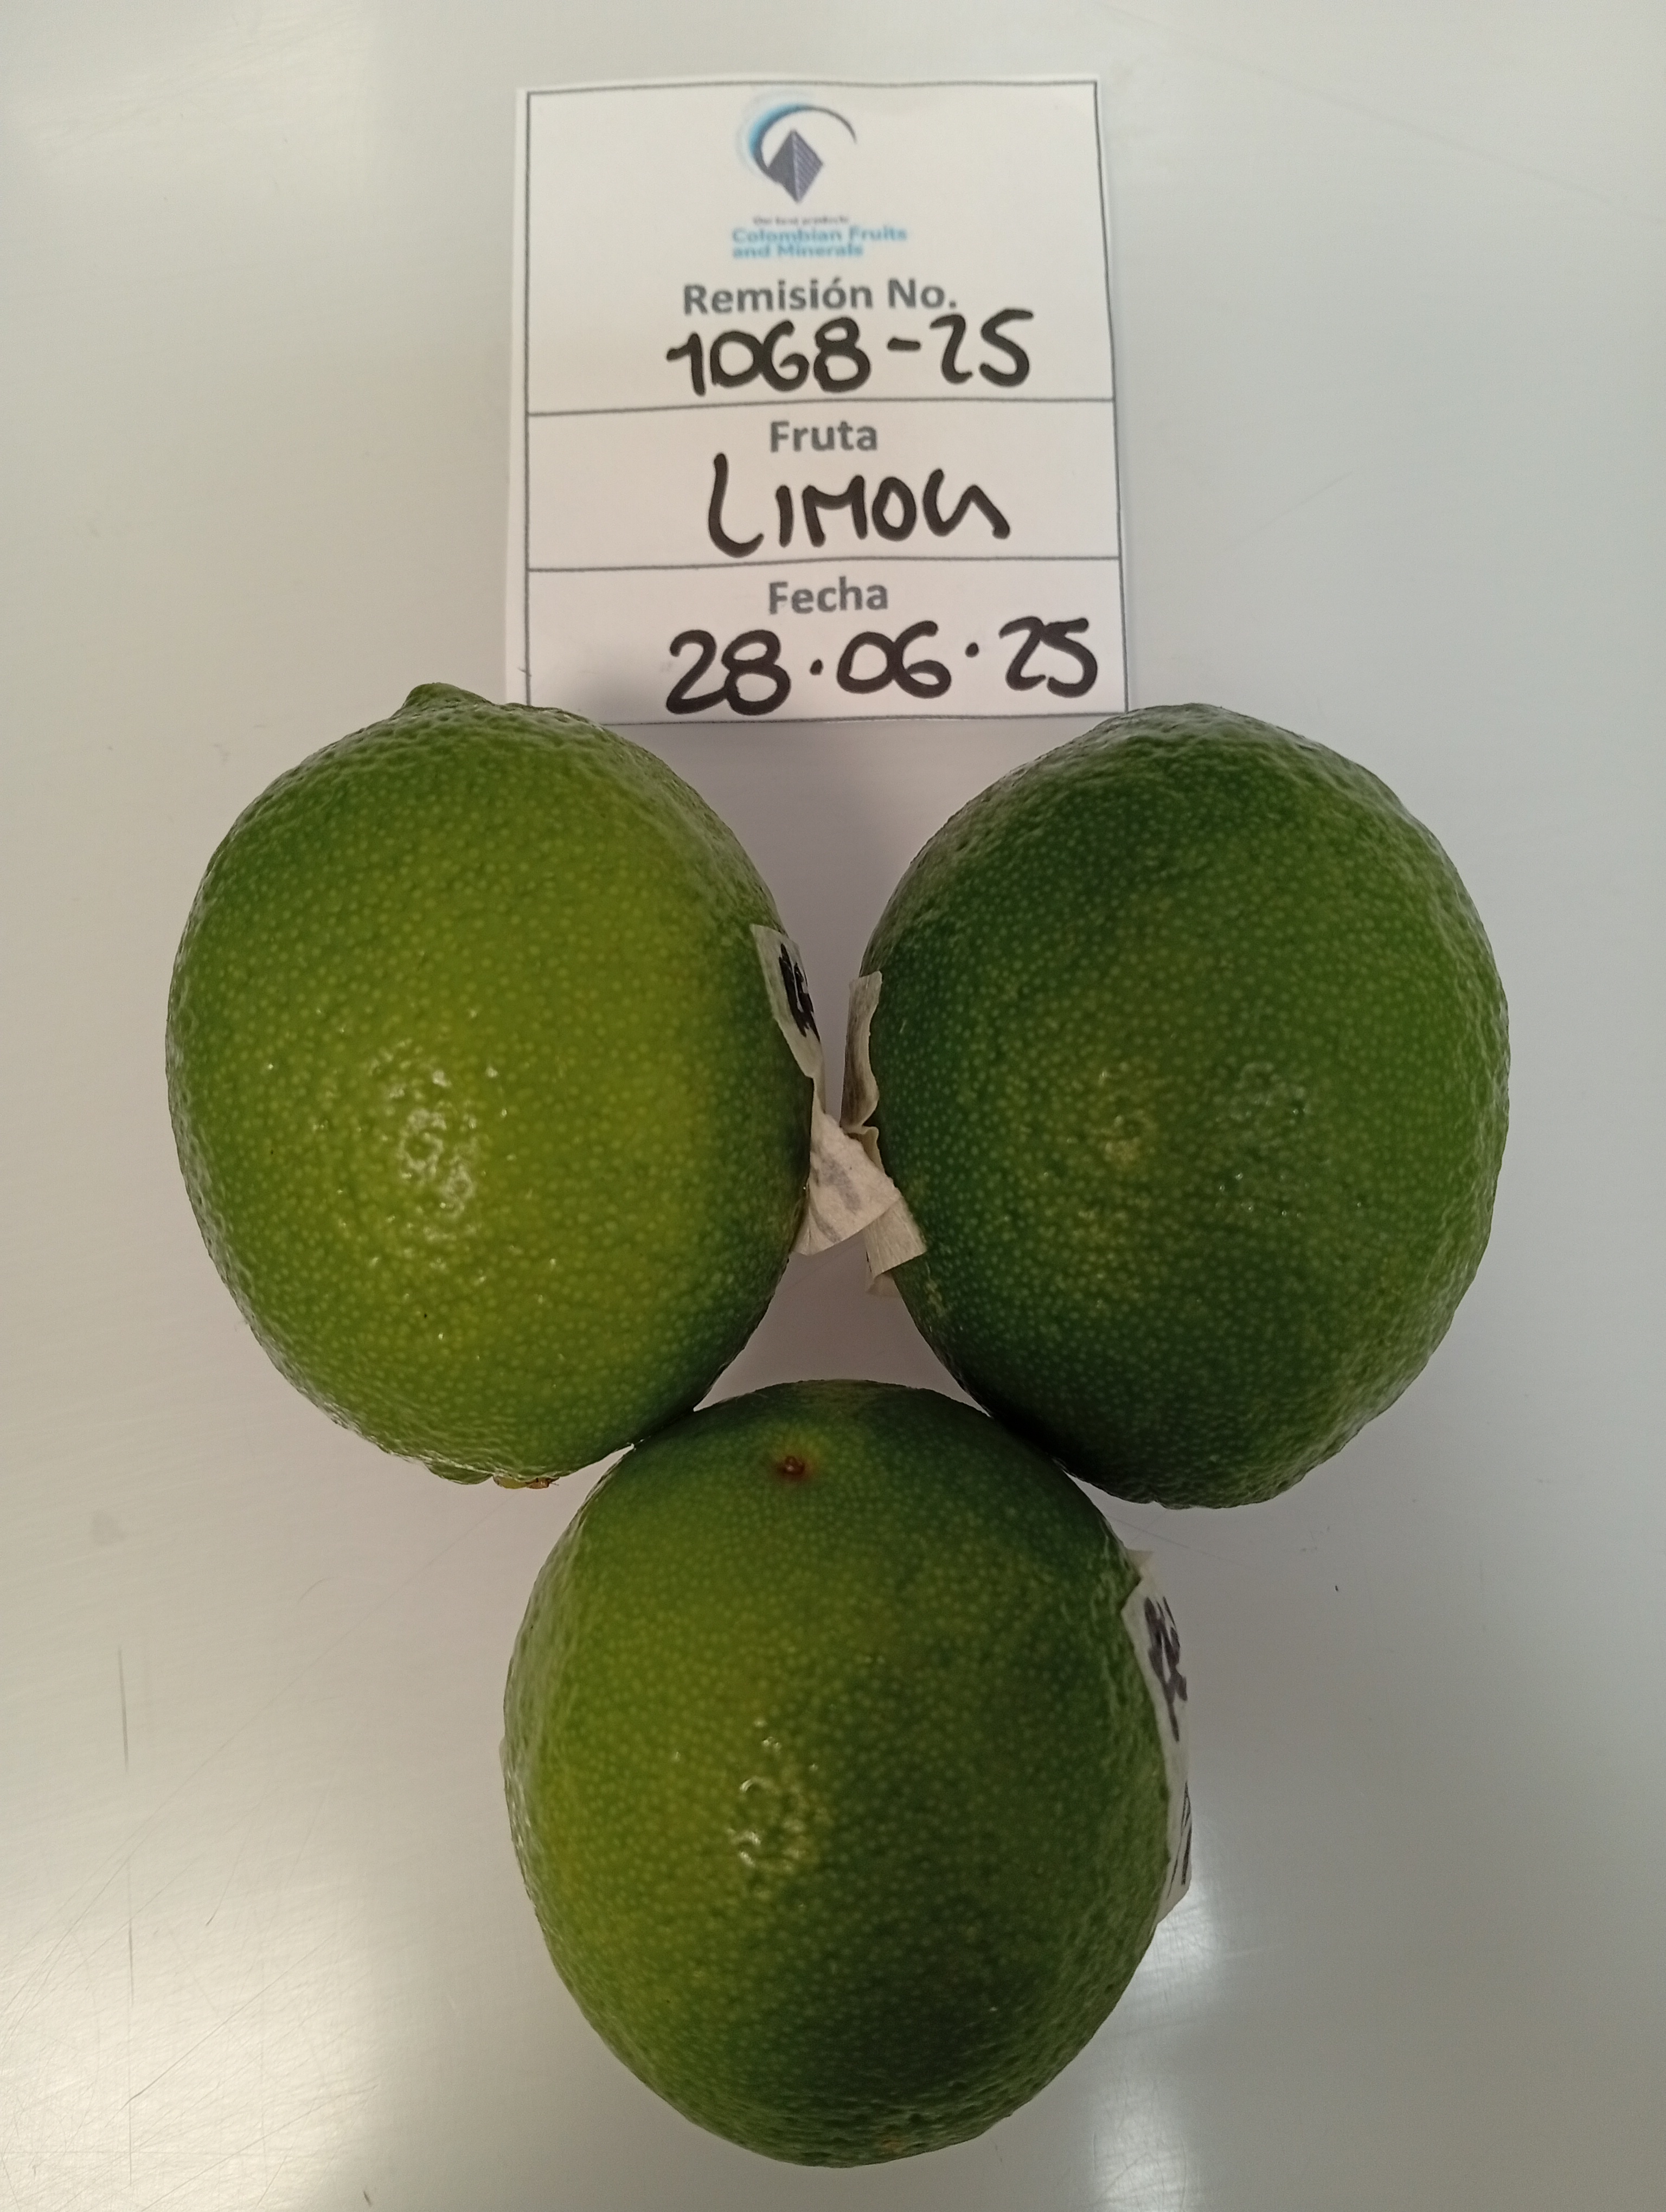 Our best products
Colombian Fruits
and Minerals
Remisión No.
1068-25
Fruta
LIMON
Fecha
28.06.25